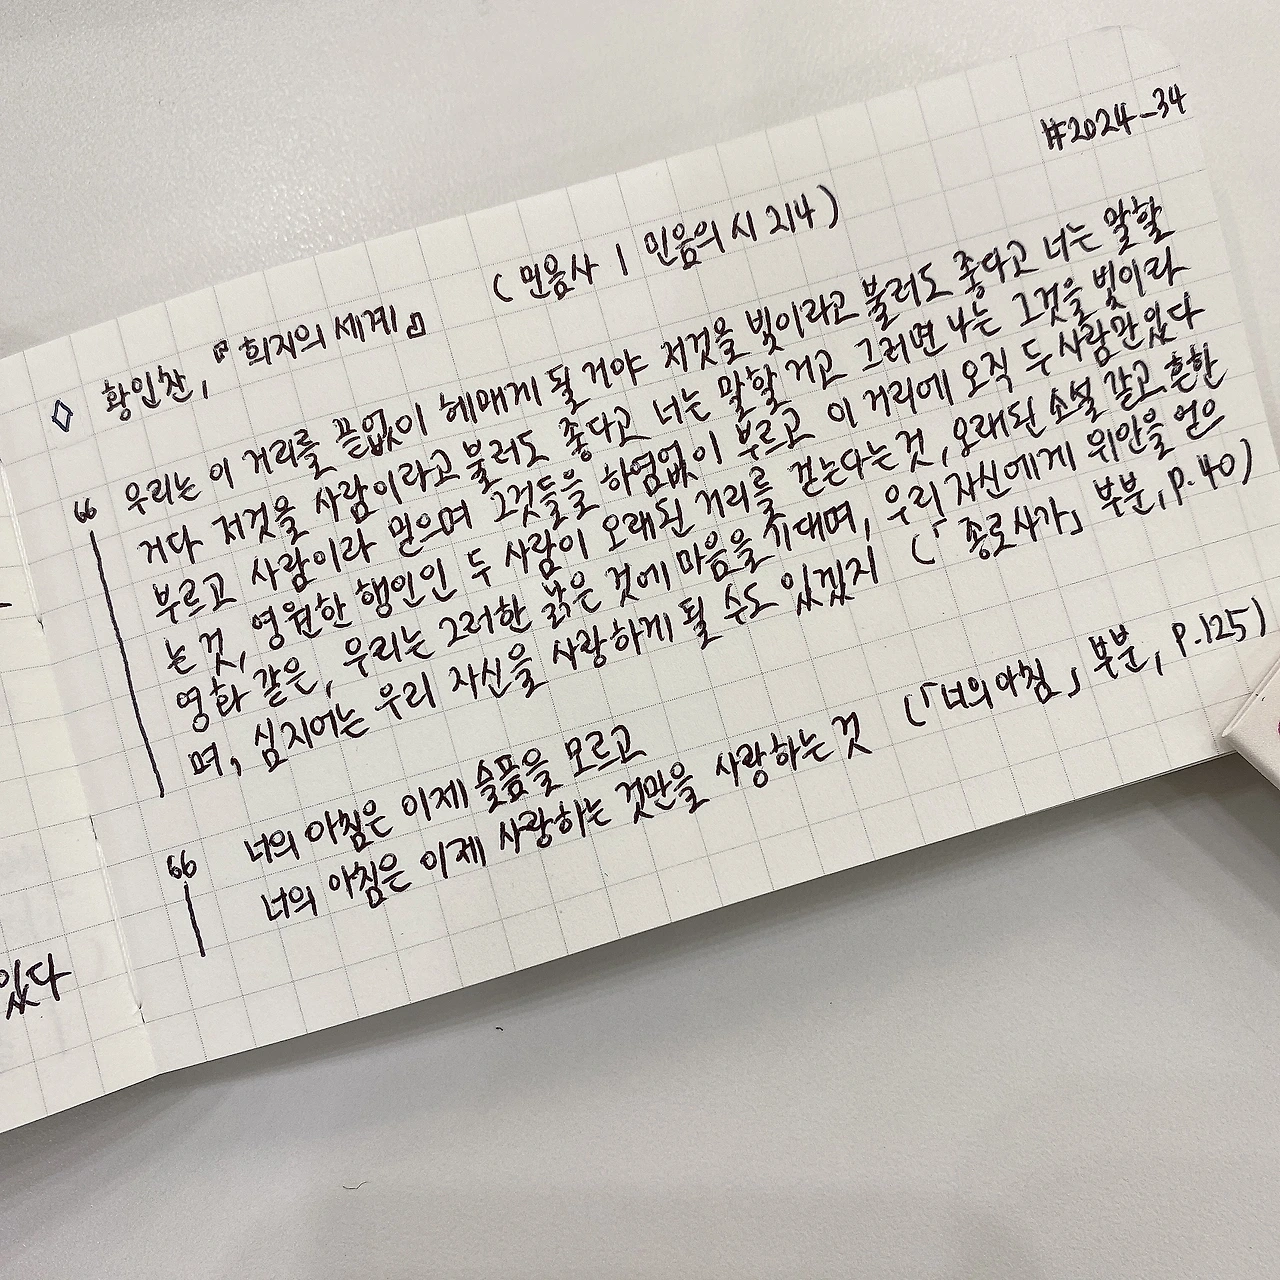 #2024-34
◇ 황인찬, 『희지의 세계』 (민음사 | 민음의 시 214)
“ 우리는 이 거리를 끝없이 헤매게 될 거야 저것을 빛이라고 불러도 좋다고 너는 말할
거다 저것을 사람이라고 불러도 좋다고 너는 말할 거고 그러면 나는 그것을 빛이라
부르고 사람이라 믿으며 그것들을 하염없이 부르고 이 거리에 오직 두 사람만 있다
는 것, 영원한 행인인 두 사람이 오래된 거리를 걷는다는 것, 오래된 소설 같고 흔한
영화 같은, 우리는 그러한 낡은 것에 마음을 기대며, 우리 자신에게 위안을 얻으
며, 심지어는 우리 자신을 사랑하게 될 수도 있겠지 (「종로사가」 부분, p.40)
“ 너의 아침은 이제 슬픔을 모르고
너의 아침은 이제 사랑하는 것만을 사랑하는 것 (「너의 아침」 부분, p.125)
있다